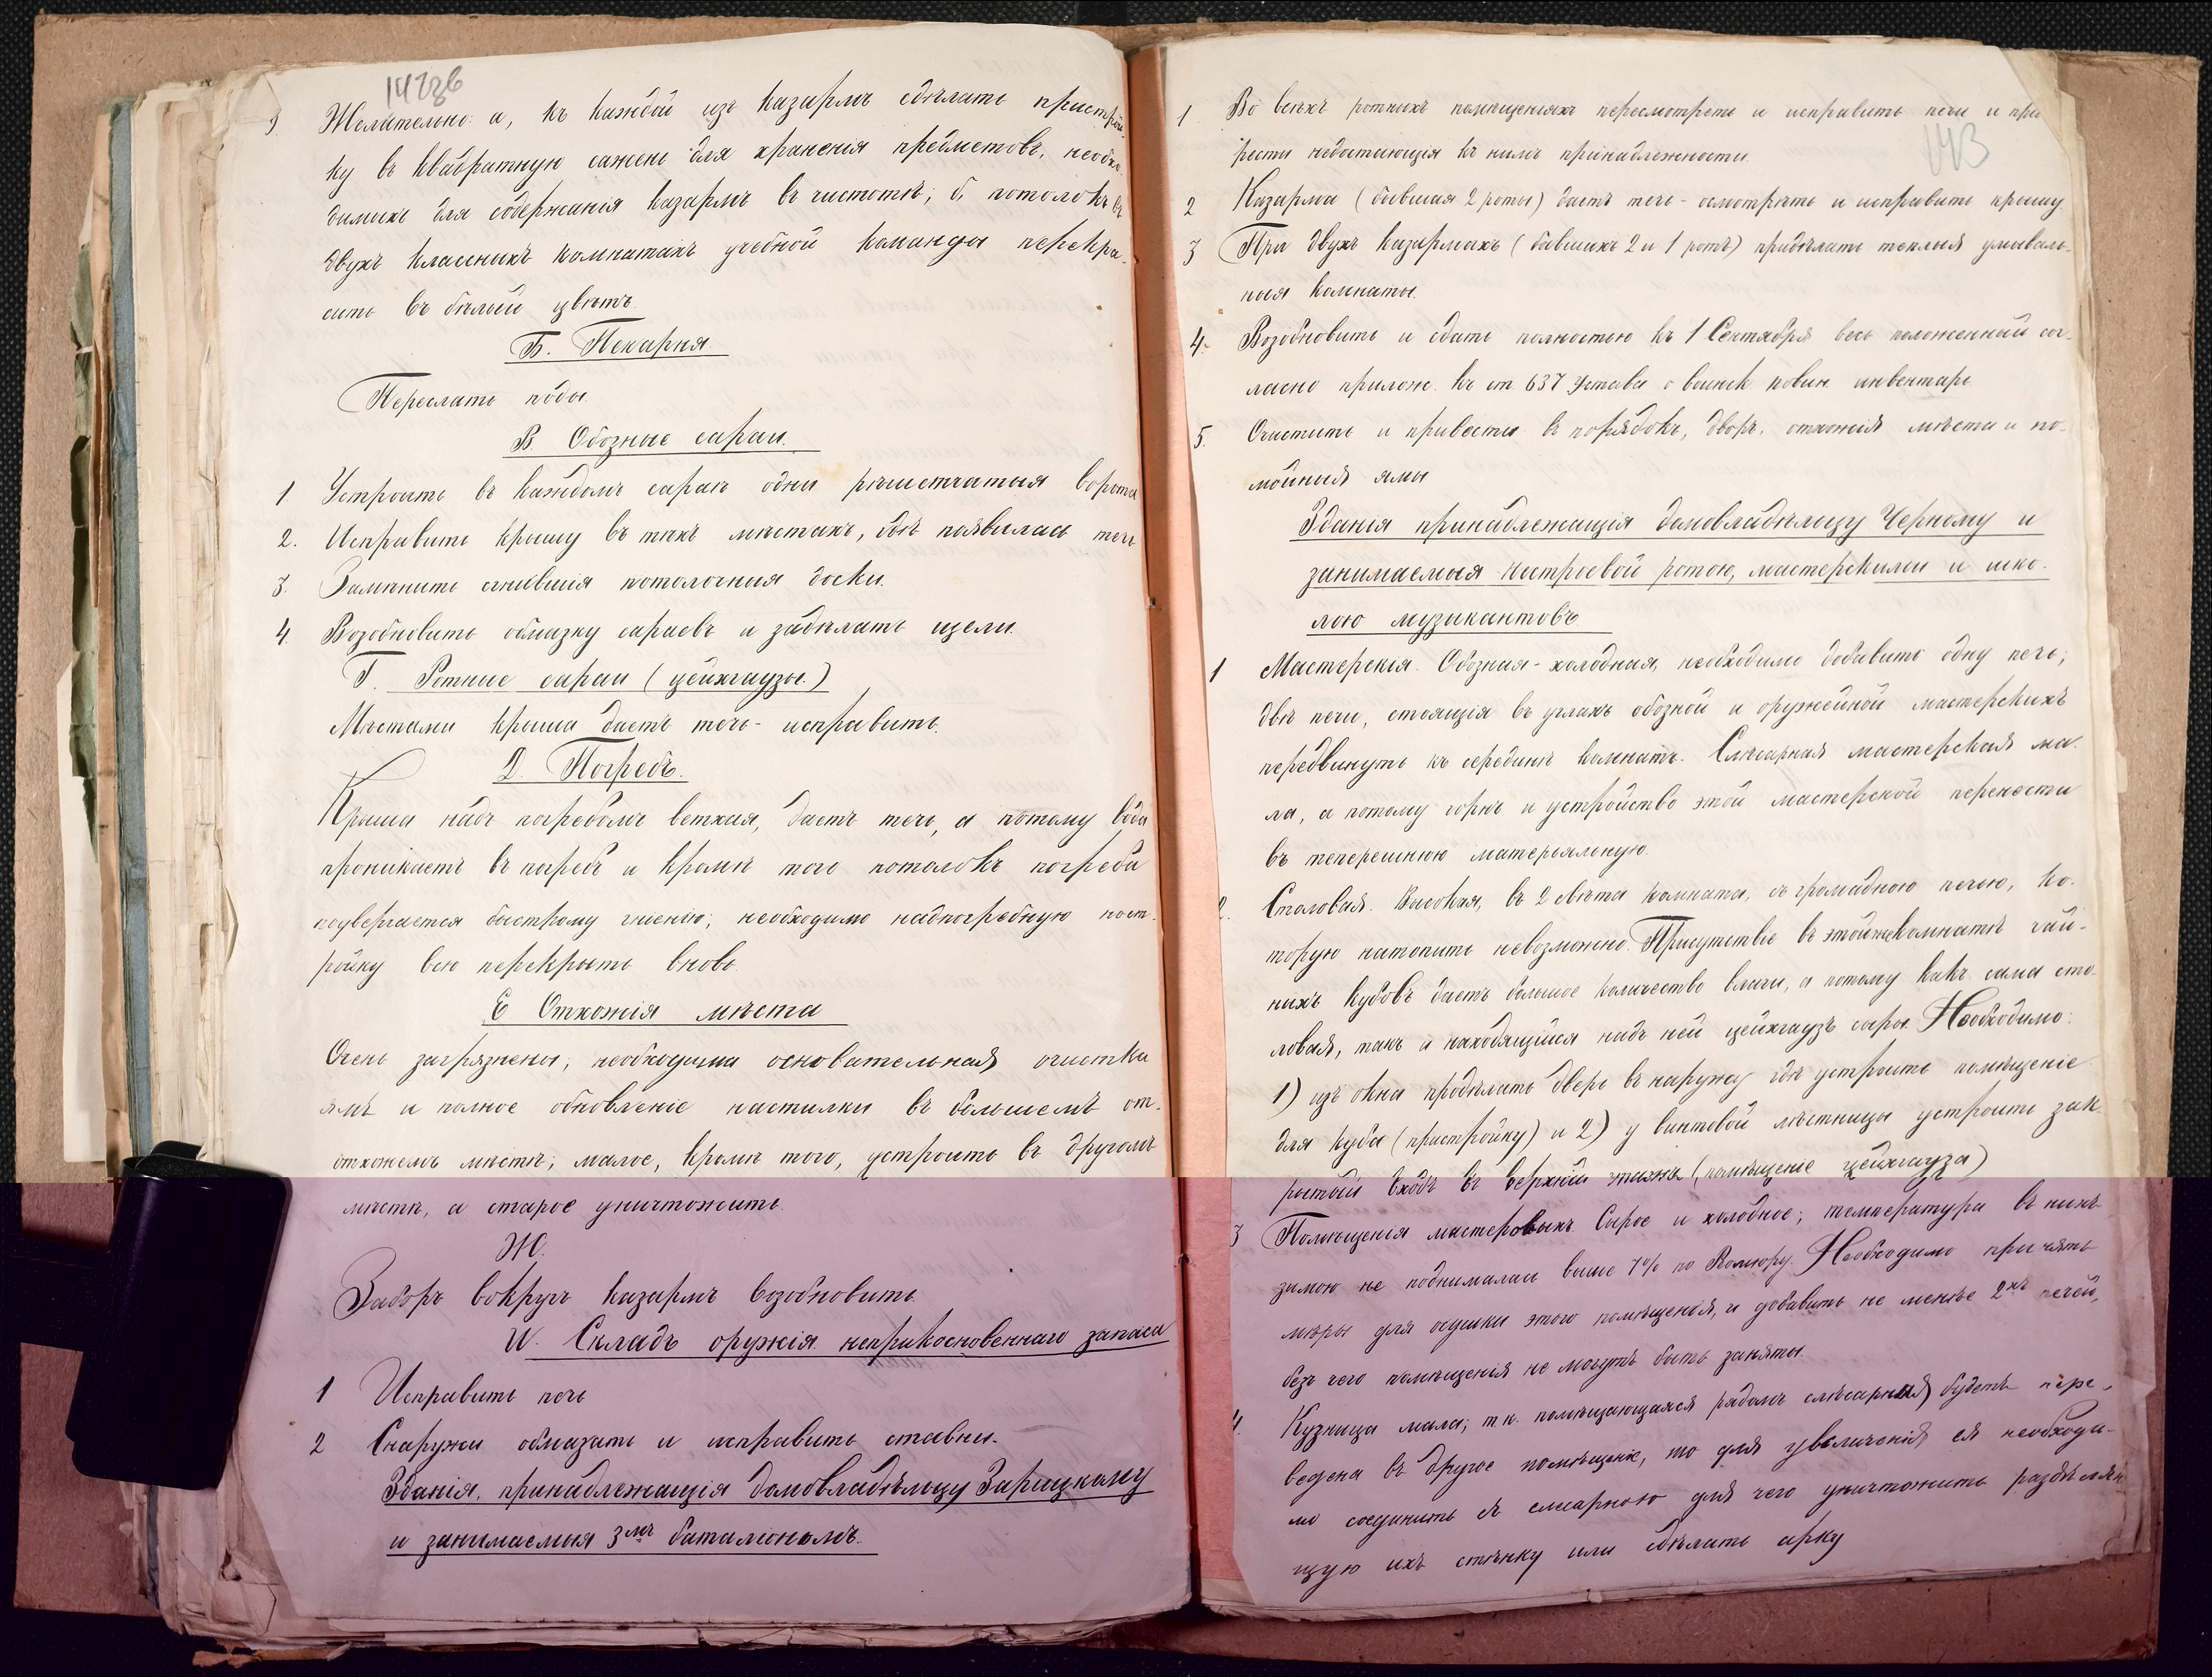 142об
9 Желательно: а, къ каждой изъ казармъ сдѣлать пристрой-
ку въ квадратную сажень для храненія предметовъ, необхо-
димыхъ для содержанія казармъ въ чистотѣ; б, потолокъ въ
двухъ классныхъ комнатахъ учебной команды перекра-
сить въ бѣлый цвѣтъ.
Б. Пекарня
Переслать поды.
В. Обозные сараи.
1 Устроить въ каждомъ сараѣ одни рѣшетчатыя ворота
2. Исправить крышу въ тѣхъ мѣстахъ, гдѣ появилась течь
3. Замѣнить сгнившія потолочныя доски.
4. Возобновить обмазку сараевъ и задѣлать щели.
Г. Ротные сараи (цейхгаузы.)
Мѣстами крыша даетъ течь - исправить.
Д. Погребъ.
Крыша надъ погребомъ ветхая, даетъ течь, а потому вода
проникаетъ въ погребъ и кромѣ того потолокъ погреба
подвергается быстрому гніенію; необходимо надпогребную пост-
ройку всю перекрыть вновь.
Е Отхожія мѣста
Очень загрязнены; необходима основательная очистка
ямъ и полное обновленіе настилки въ большемъ от-
отхожемъ мѣстѣ; малое, кромѣ того, устроить въ другомъ
мѣстѣ, а старое уничтожить.
Ж.
Заборъ вокругъ казармъ возобновить.
И. Складъ оружія неприкосновеннаго запаса
1 Исправить печь
2 Снаружи обмазать и исправить ставни.
Зданія, принадлежащія домовладѣльцу Зарицкому
и занимаемыя 3мъ баталіономъ.
143
1 Во всѣхъ ротныхъ помѣщеніяхъ пересмотреть и исправить печи и при
рести недостающія къ нимъ принадлежности.
2 Казарма (бывшая 2 роты) даетъ течь - осмотрѣть и исправить крышу.
3 При двухъ казармахъ (бывшихъ 2 и 1 ротъ) придѣлать теплыя умываль-
ныя комнаты.
4. Возобновить и сдать полностью къ 1 Сентября весь положенный сог-
ласно прилож. къ ст. 637 Устава о воинск. повин. инвентарь
5. Очистить и привести въ порядокъ, дворъ, отхожія мѣста и по-
мойныя ямы
Зданія принадлежащія домовладѣльцу Черному и
занимаемыя нестроевой ротою, мастерскими и шко-
лою музыкантовъ
1 Мастерскія. Обозная - холодная, необходимо добавить одну печь;
двѣ печи, стоящія въ углахъ обозной и оружейной мастерскихъ
передвинуть къ серединѣ комнатъ. Слѣсарная мастерская ма-
ла, а потому горнъ и устройство этой мастерской перенести
въ теперешнюю матерьяльную.
2. Столовая. Высокая, въ 2 свѣта комната, съ громадною печью, ко-
торую натопить невозможно. Присутствіе въ этой же комнатѣ чай-
ныхъ кубовъ даетъ большое количество влаги, а потому какъ сама сто-
ловая, такъ и находящійся надъ ней цейхгаузъ сыры. Необходимо:
1) изъ окна продѣлать дверь въ наружу гдѣ устроить помѣщеніе
для куба (пристройку) и 2) у винтовой лѣстницы устроить зак-
рытый входъ въ верхній этажъ (помѣщеніе цейхгауза)
3 Помѣщенія мастеровыхъ Сырое и холодное; температура въ нихъ
зимою не поднималась выше 7% по Реомюру. Необходимо принять
мѣры для осушки этого помѣщенія, и добавить не менѣе 2хъ печей,
безъ чего помѣщенія не могутъ быть заняты.
4. Кузница мала; т.к. помѣщающаяся рядомъ слѣсарная будетъ пере-
ведена въ другое помѣщеніе, то для увеличенія ея необходи-
мо соединить съ слесарною для чего уничтожить раздѣляю-
щую ихъ стѣнку или сдѣлать арку